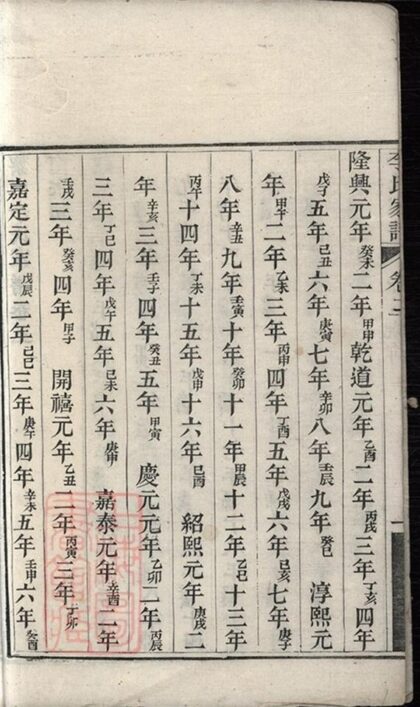 李氏家譜 卷
隆興元年癸未二年甲申乾道元年乙酉二年丙戌三年丁亥四年
戊子五年己丑六年庚寅七年辛卯八年壬辰九年癸巳 淳熙元
年甲午二年乙未三年丙申四年丁酉五年戊戌六年己亥七年庚子
八年辛丑九年壬寅十年癸卯十一年甲辰十二年乙巳十三年
丙午十四年丁未十五年戊申十六年己酉 紹熙元年庚戌二
年辛亥三年壬子四年癸丑五年甲寅 慶元元年乙卯二年丙辰
三年丁巳四年戊午五年己未六年庚申 嘉泰元年辛酉二年
壬戌三年癸亥四年甲子 開禧元年乙丑二年丙寅三年丁卯
嘉定元年戊辰二年己巳三年庚午四年辛未五年壬申六年癸酉